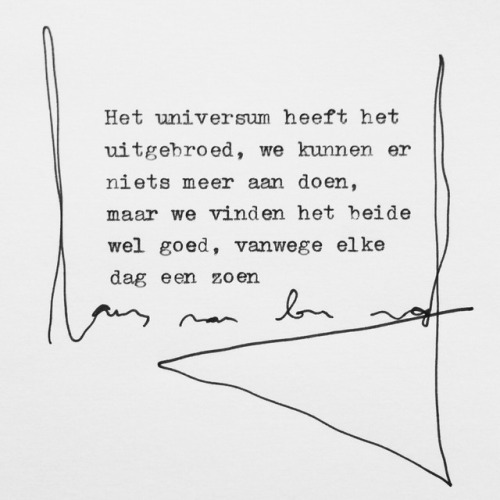 Het universum heeft het
uitgebroed, we kunnen er
niets meer aan doen,
maar we vinden het beide
wel goed, vanwege elke
dag een zoen